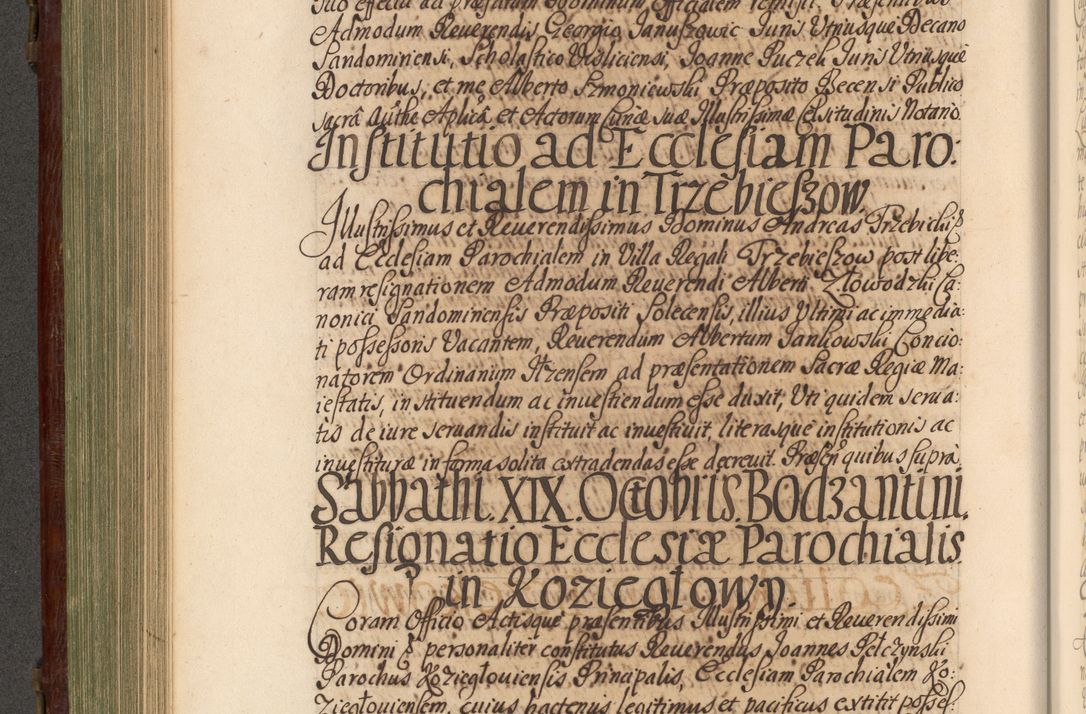 suo effectu ad præfatum Dominum Officialem remisit. Præsentibus
Admodum Reuerendis Georgio Januszowic Juris Vtriusque Decano
Sandomiriensi, Scholastico Visliciensi, Joanne Puczek Juris Vtriusque
Doctoribus, et me Alberto Szmoniewski Præposito Becensi Publico
sacrâ Authe Aplicâ et Actorum Curiæ suæ Illustrissimæ Celsitudinis Notario.
Institutio ad Ecclesiam Paro:
chialem in Trzebieszow
Illustrissimus et Reuerendissimus Dominus Andreas Trzebicki
ad Ecclesiam Parochialem in Villa Regali Trzebieszow post libe:
ram resignationem Admodum Reuerendi Alberti Złowodzki Ca:
nonici Sandomiriensis Præpositi Solecensis, illius Vltimi ac immedia:
ti possessoris Vacantem, Reuerendum Albertum Jankowski Concio:
natorem Ordinarium Itzensem ad præsentationem Sacræ Regiæ Ma:
iestatis, instituendum ac inuestiendum esse duxit, Vti quidem serua:
tis de iure seruandis instituit ac inuestiuit, literasque institutionis ac
inuestituræ in forma solita extradendas esse decreuit. Præsen quibus suprà.
Sabbathi. XIX. Octobris Bodzantini.
Resignatio Ecclesiæ Parochialis
in Koziegłowy.
Coram Officio Actisque præsentibus Illustrissimi et Reuerendissimi
Domini personaliter constitutus Reuerendus Joannes Pełczynski
Parochus Koziegłouiensis Principalis, Ecclesiam Parochialem Ko:
Ziegłouiensem, cuius hactenus legitimus et pacificus extitit posses: